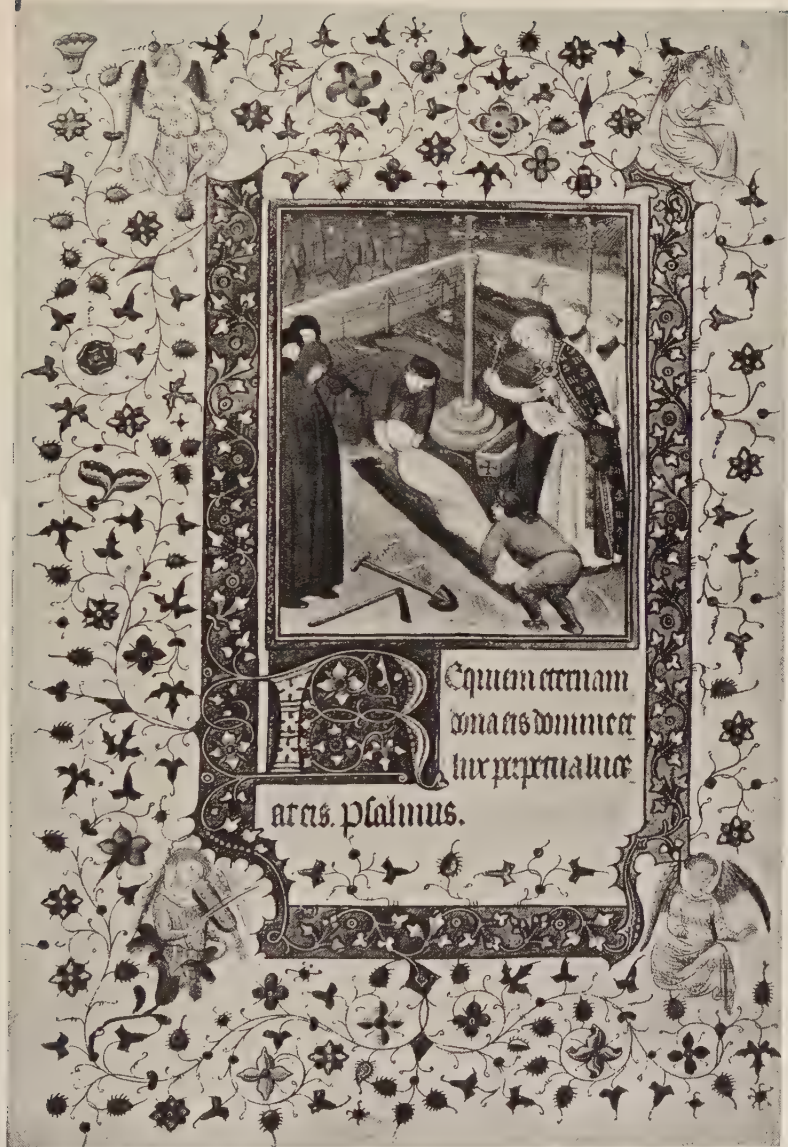 Requiem eternam
dona eis domine et
lux perpetua luce
at eis. psalmus.